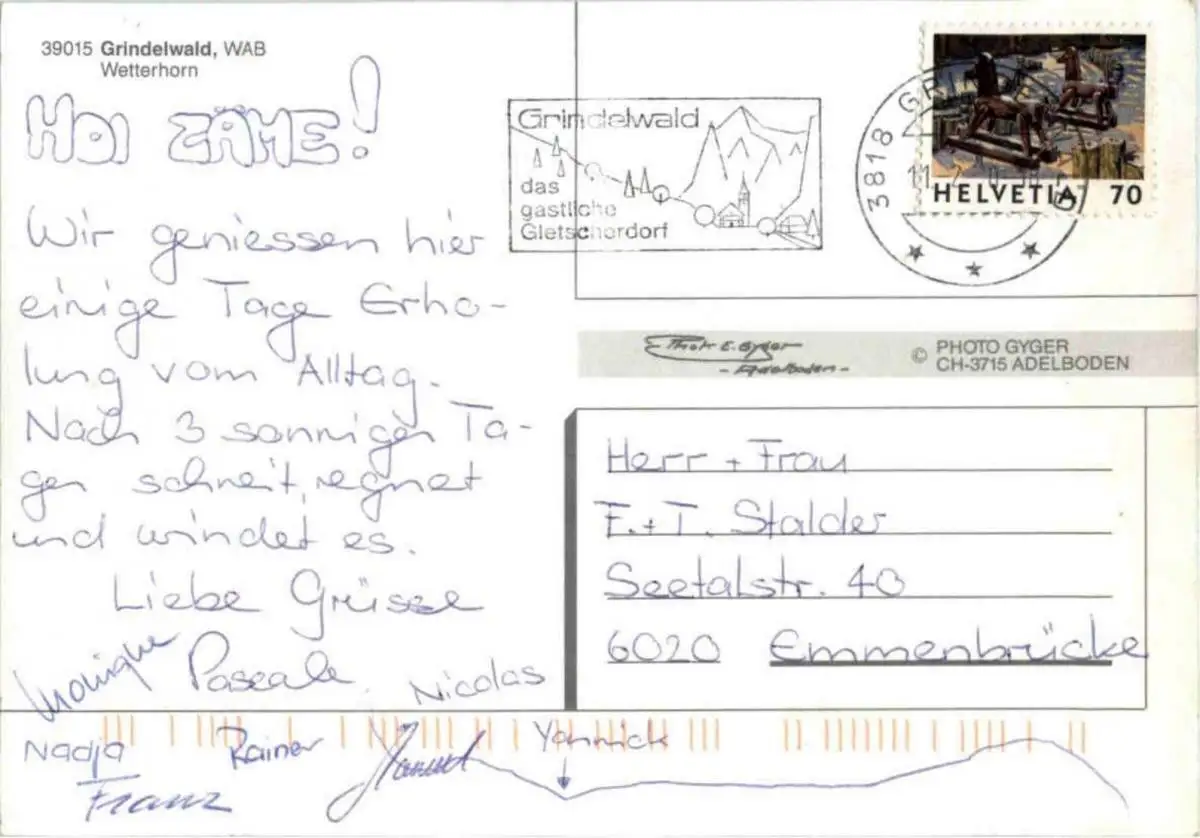 39015 Grindelwald, WAB
Wetterhorn
HOI ZÄME!
Wir geniessen hier
einige Tage Erho-
lung vom Alltag.
Nach 3 sonnigen Ta-
gen schneit, regnet
und windet es.
Liebe Grüsse
Monique Pascale Nicolas
Nadja Rainer Yannick
Franz
Grindelwald
das
gastliche
Gletscherdorf
3818 GRINDE
HELVETIA 70
Photo E. Gyger
- Adelboden -
© PHOTO GYGER
CH-3715 ADELBODEN
Herr + Frau
F. + T. Stalder
Seetalstr. 40
6020 Emmenbrücke